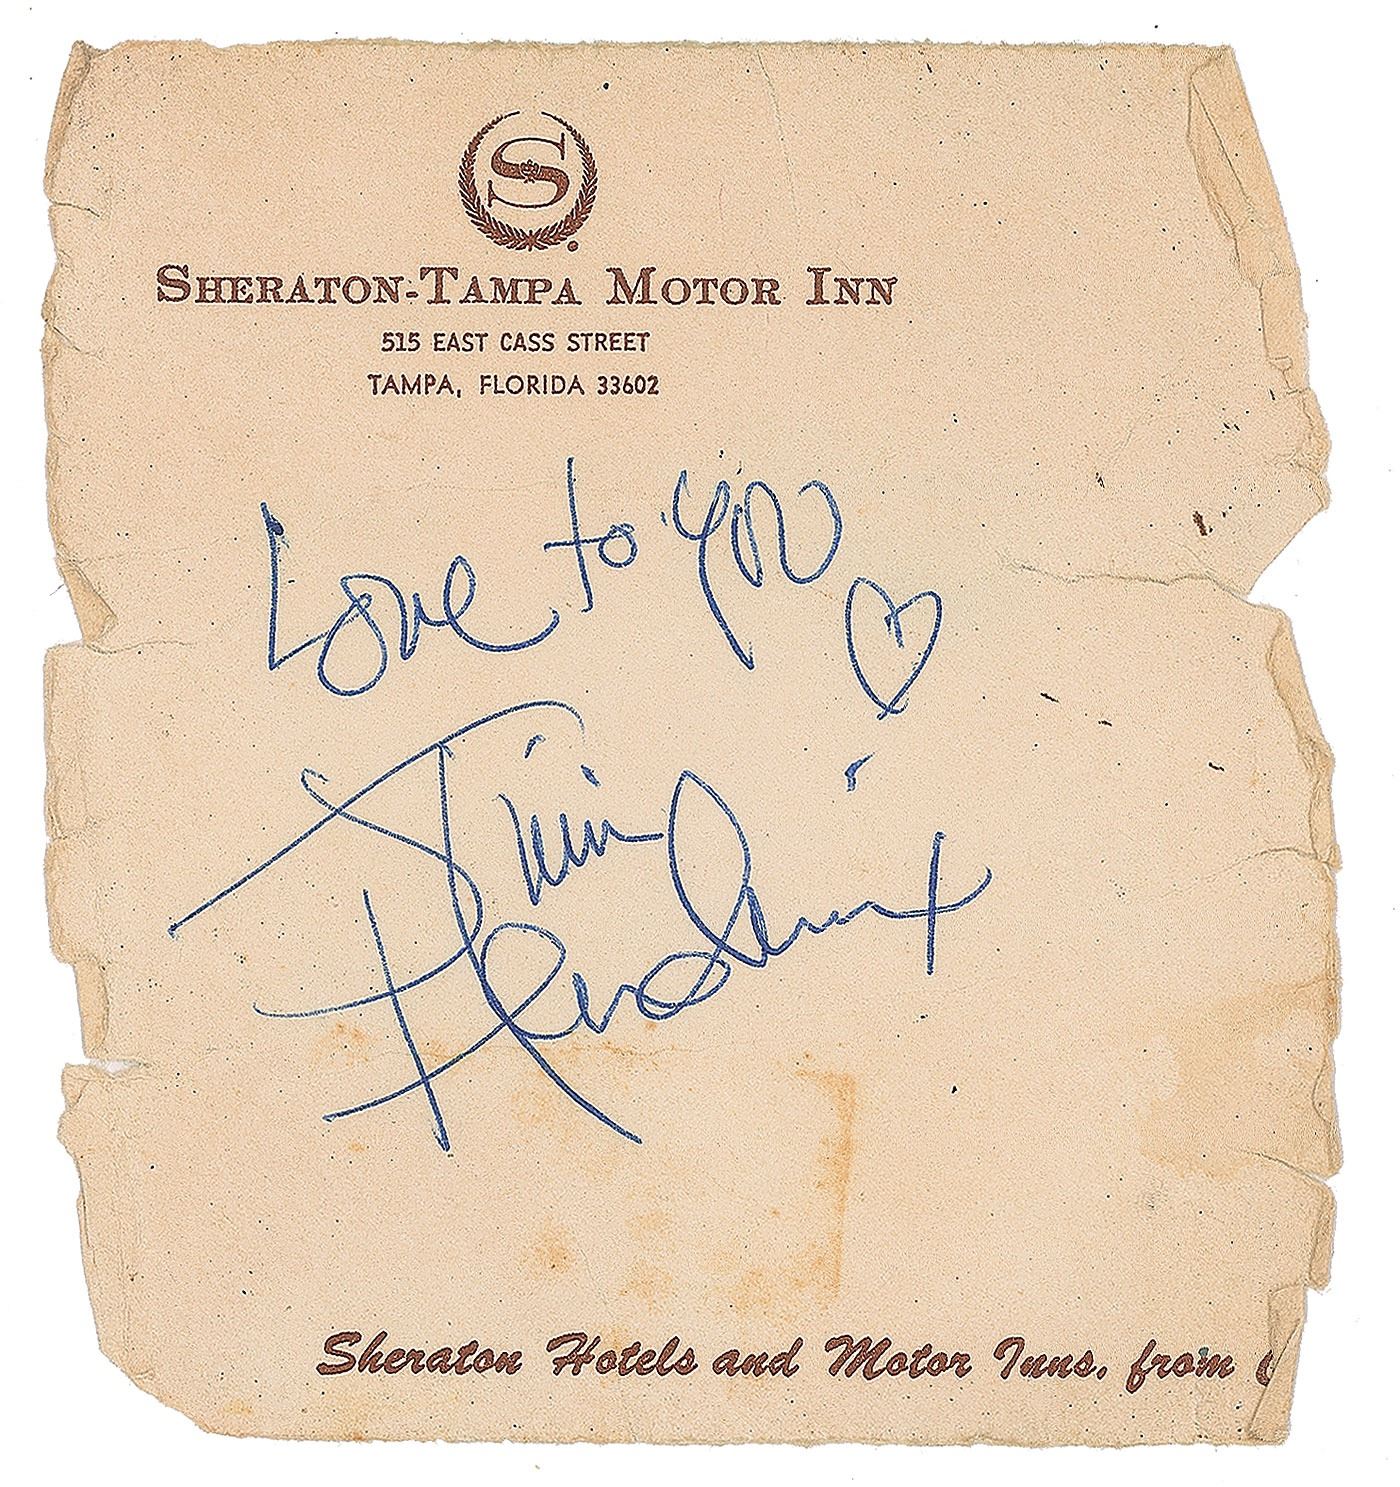 S
SHERATON-TAMPA MOTOR INN
515 EAST CASS STREET
TAMPA, FLORIDA 33602
Love to you
Jimi
Hendrix
Sheraton Hotels and Motor Inns, from